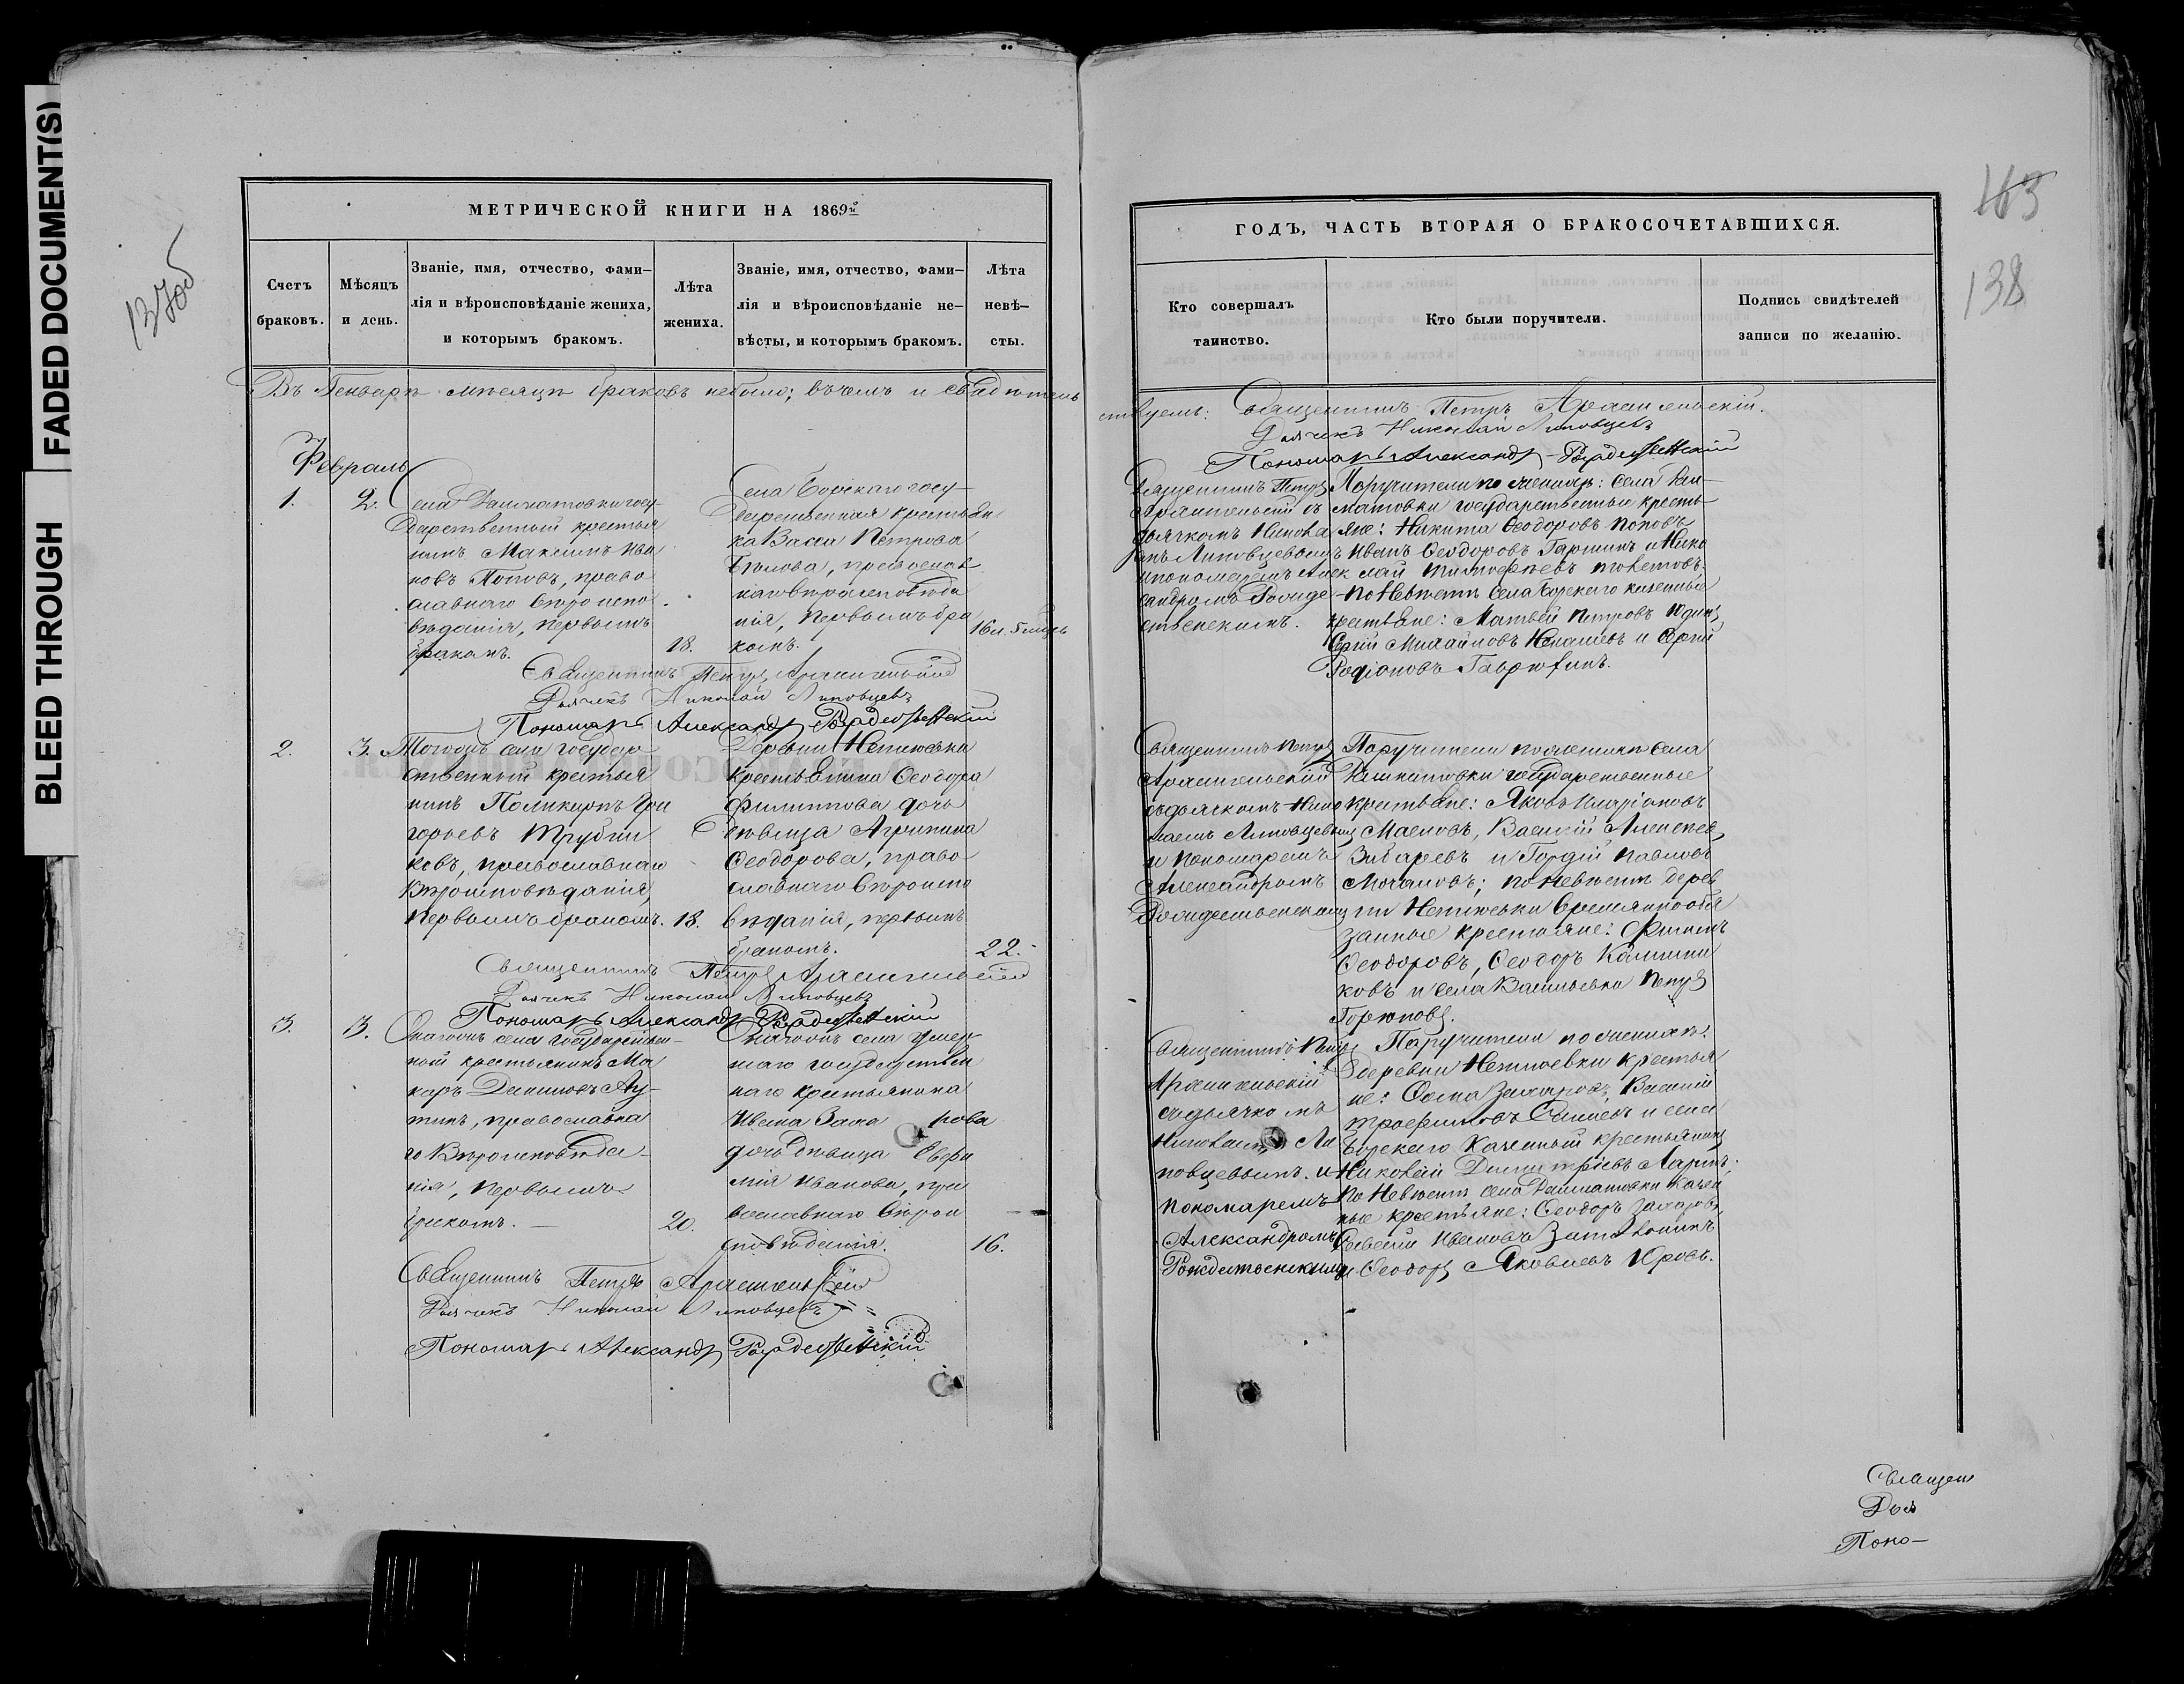 FADED DOCUMENT(S)
BLEED THROUGH
137об
МЕТРИЧЕСКОЙ КНИГИ НА 1869й
Счетъ браковъ.
Мѣсяцъ и день.
Званіе, имя, отчество, фами-
лія и вѣроисповѣданіе жениха,
и которымъ бракомъ.
Лѣта жениха.
Званіе, имя, отчество, фами-
лія и вѣроисповѣданіе не-
вѣсты, и которымъ бракомъ.
Лѣта невѣ-
сты.
Въ Генварѣ мѣсяцѣ браковъ небыло; въчемъ и свидѣтель
Февраль
1. 2.
Села
государственный крестья
нинъ Максимъ Ива
новъ Поповъ, право
славнаго вѣроиспо
вѣданія, первымъ
бракомъ.
18.
Села Борскаго госу-
дарственная крестьян
ка Васса Петрова
Бѣлова, православ
наго вѣроисповѣда
нія, первымъ бра
комъ.
16 и 5 мѣсяц
Священникъ Петръ Архангельскій
Дьячекъ Николай Липовцевъ
Пономарь Александръ Рождественскій
2. 3.
Тогожъ села государ
ственный крестья
нинъ Поликарпъ Гри
горьевъ Трубни
ковъ, православнаго
вѣроисповѣданія,
первымъ бракомъ.
18.
Деревни Неплюевки
крестьянина Ѳеодора
Филиппова дочь
дѣвица Агрипина
Ѳеодорова, право
славнаго вѣроиспо
вѣданія, первымъ
бракомъ.
22.
Священникъ Петръ Архангельскій
Дьячекъ Николай Липовцевъ
Пономарь Александръ Рождественскій
3. 3.
Онагожъ села государствен-
ный крестьянинъ Ма
каръ Даниловъ
православна
го вѣроисповѣда-
нія, первымъ
бракомъ.
20.
Онагожъ села умер
шаго государствен
наго крестьянина
Ивана Заха рова
дочь дѣвица Евфи
мія Иванова, пра
вославнаго вѣрои
сповѣданія.
16.
Священникъ Петръ Архангельскій
Дьячекъ Николай Липовцевъ
Пономарь Александръ Рождественскій
163
138
ГОДЪ, ЧАСТЬ ВТОРАЯ О БРАКОСОЧЕТАВШИХСЯ.
Кто совершалъ
таинство.
Кто были поручители.
Подпись свидѣтелей
записи по желанію.
ствуемъ: Священникъ Петръ Архангельскій.
Дьячекъ Николай Липовцевъ
Пономарь Александръ Рождественскій
Священникъ Петръ
Архангельскій съ
дьячкомъ Никола
емъ Липовцевымъ
и пономаремъ Алек
сандромъ Рожде
ственскимъ.
Поручители по женихѣ: села
государственныи кресть
яне: Никита Ѳеодоровъ Поповъ
Иванъ Ѳеодоровъ Гаршинъ и Нико
лай Тимофѣевъ
по Невѣстѣ Села Борскаго казенные
крестьяне: Матвей Петровъ Юдинъ,
Сергій Михайловъ и Сергій
Родіоновъ Гаврюшинъ.
Священникъ Петръ
Архангельскій
съ дьячкомъ Нико
лаемъ Липовцевымъ
и пономаремъ
Александромъ
Рождественскимъ
Поручители по женихѣ села
государственные
крестьяне: Яковъ Иларіоновъ
Масловъ, Василій Алексѣевъ
и Гордій Павловъ
Мочаловъ; по невѣстѣ дерев
ни Неплюевки временнообя
занные крестьяне: Филипъ
Ѳеодоровъ, Ѳеодоръ Калашни
ковъ и села Васильевки Петръ
Горюновъ.
Священникъ Петръ
Архангельскій
съ дьячкомъ
Николаемъ Ли
повцевымъ. и
пономаремъ
Александромъ
Рождественскимъ
Поручители по женихѣ:
деревни Неплюевки крестья
не: Ѳома Захаровъ, Василій
Трофимовъ и села
Борскаго казенный крестьянинъ
Николай Димитріевъ Ларинъ;
По Невѣстѣ села казен
ные крестьяне: Ѳеодоръ Захаровъ,
Савелій Ивановъ
и Ѳеодоръ Яковлевъ Юровъ.
Священ
Дья
Поно-